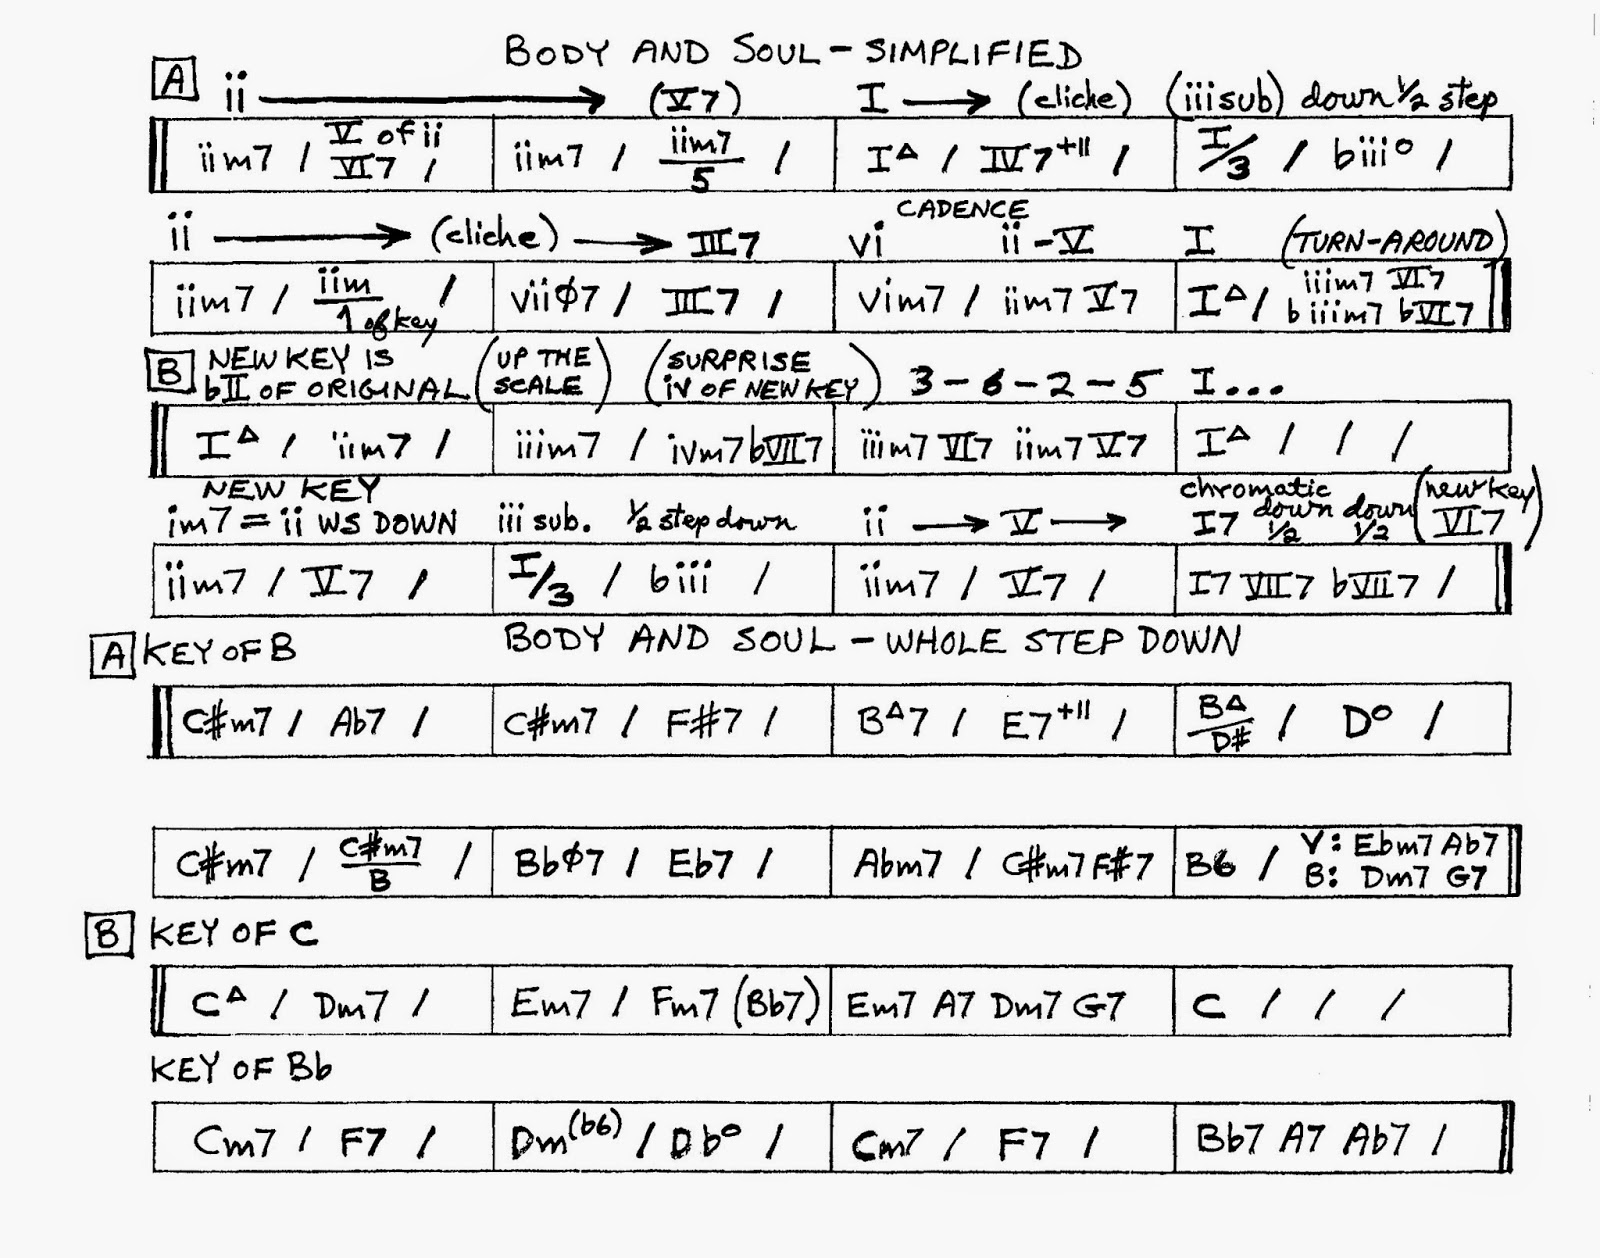 BODY AND SOUL – SIMPLIFIED
A ii → (V7) I → (cliche) (iii sub) down 1/2 step
iim7 / V of ii VI7 / | iim7 / iim7/5 / | I△ / IV7+11 / | I/3 / biii° /
ii → (cliche) → III7 vi CADENCE ii - V I (TURN-AROUND)
iim7 / iim/1 of key / | viiø7 / III7 / | vim7 / iim7 V7 | I△ / iiim7 VI7 biiim7 bVI7
B NEW KEY IS bII OF ORIGINAL (UP THE SCALE) (SURPRISE iv OF NEW KEY) 3 – 6 – 2 – 5 I...
I△ / iim7 / | iiim7 / ivm7 bVII7 | iiim7 VI7 iim7 V7 | I△ / / /
NEW KEY im7 = ii WS DOWN iii sub. 1/2 step down ii → V → chromatic I7 down 1/2 down 1/2 (new key VI7)
iim7 / V7 / | I/3 / biii / | iim7 / V7 / | I7 VII7 bVII7 /
BODY AND SOUL – WHOLE STEP DOWN
A KEY OF B
C#m7 / Ab7 / | C#m7 / F#7 / | B△7 / E7+11 / | B△/D# / D° /
C#m7 / C#m7/B / | Bbø7 / Eb7 / | Abm7 / C#m7 F#7 | B6 / V: Ebm7 Ab7 B: Dm7 G7
B KEY OF C
C△ / Dm7 / | Em7 / Fm7 (Bb7) | Em7 A7 Dm7 G7 | C / / /
KEY OF Bb
Cm7 / F7 / | Dm(b6) / Db° / | Cm7 / F7 / | Bb7 A7 Ab7 /